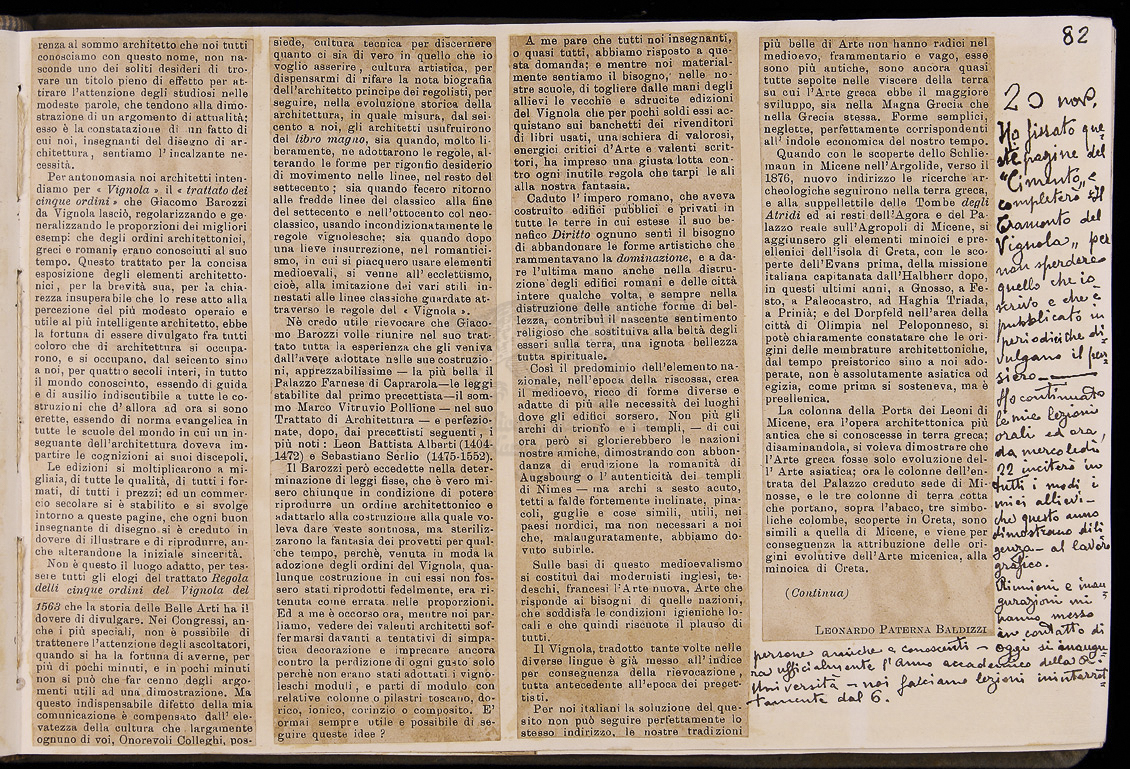 82
renza al sommo architetto che noi tutti
conosciamo con questo nome, non na-
sconde uno dei soliti desideri di tro-
vare un titolo pieno di effetto per at-
tirare l'attenzione degli studiosi nelle
modeste parole, che tendono alla dimo-
strazione di un argomento di attualità;
esso è la constatazione di un fatto di
cui noi, insegnanti del disegno di ar-
chitettura, sentiamo l'incalzante ne-
cessità.
Per antonomasia noi architetti inten-
diamo per « Vignola » il « trattato dei
cinque ordini » che Giacomo Barozzi
da Vignola lasciò, regolarizzando e ge-
neralizzando le proporzioni dei migliori
esempi che degli ordini architettonici,
greci e romani, erano conosciuti al suo
tempo. Questo trattato per la concisa
esposizione degli elementi architetto-
nici, per la brevità sua, per la chia-
rezza insuperabile che lo rese atto alla
percezione del più modesto operaio e
utile al più intelligente architetto, ebbe
la fortuna di essere divulgato fra tutti
coloro che di architettura si occupa-
rono, e si occupano, dal seicento sino
a noi, per quattro secoli interi, in tutto
il mondo conosciuto, essendo di guida
e di ausilio indiscutibile a tutte le co-
struzioni che d'allora ad ora si sono
erette, essendo di norma evangelica in
tutte le scuole del mondo in cui un in-
segnante dell'architettura doveva im-
partire le cognizioni ai suoi discepoli.
Le edizioni si moltiplicarono a mi-
gliaia, di tutte le qualità, di tutti i for-
mati, di tutti i prezzi: ed un commer-
cio secolare si è stabilito e si svolge
intorno a queste pagine, che ogni buon
insegnante di disegno si è creduto in
dovere di illustrare e di riprodurre, an-
che alterandone la iniziale sincerità.
Non è questo il luogo adatto, per tes-
sere tutti gli elogi del trattato Regola
delli cinque ordini del Vignola del
1563 che la storia delle Belle Arti ha il
dovere di divulgare. Nei Congressi, an-
che i più speciali, non è possibile di
trattenere l'attenzione degli ascoltatori,
quando si ha la fortuna di averne, per
più di pochi minuti, e in pochi minuti
non si può che far cenno degli argo-
menti utili ad una dimostrazione. Ma
questo indispensabile difetto della mia
comunicazione è compensato dall'ele-
vatezza della cultura che largamente
ognuno di voi, Onorevoli Colleghi, pos-
siede, cultura tecnica per discernere
quanto ci sia di vero in quello che io
voglio asserire, cultura artistica, per
dispensarmi di rifare la nota biografia
dell'architetto principe dei regolisti, per
seguire, nella evoluzione storica della
architettura, in quale misura, dal sei-
cento a noi, gli architetti usufruirono
del libro magno, sia quando, molto li-
beramente, ne adottarono le regole, al-
terando le forme per rigonfio desiderio
di movimento nelle linee, nel resto del
settecento; sia quando fecero ritorno
alle fredde linee del classico alla fine
del settecento e nell'ottocento col neo-
classico, usando incondizionatamente le
regole vignolesche; sia quando dopo
una lieve insurrezione, nel romantici-
smo, in cui si piacquero usare elementi
medioevali, si venne all'ecclettismo,
cioè, alla imitazione dei vari stili in-
nestati alle linee classiche guardate at-
traverso le regole del « Vignola ».
Nè credo utile rievocare che Giaco-
mo Barozzi volle riunire nel suo trat-
tato tutta la esperienza che gli veniva
dall'avere adottate nelle sue costruzio-
ni, apprezzabilissime — la più bella il
Palazzo Farnese di Caprarola — le leggi
stabilite dal primo precettista — il som-
mo Marco Vitruvio Pollione — nel suo
Trattato di Architettura — e perfezio-
nate, dopo, dai precettisti seguenti, i
più noti: Leon Battista Alberti (1404-
1472) e Sebastiano Serlio (1475-1552).
Il Barozzi però eccedette nella deter-
minazione di leggi fisse, che è vero mi-
sero chiunque in condizione di potere
riprodurre un ordine architettonico e
adattarlo alla costruzione alla quale vo-
leva dare veste sontuosa, ma steriliz-
zarono la fantasia dei provetti per qual-
che tempo, perchè, venuta in moda la
adozione degli ordini del Vignola, qua-
lunque costruzione in cui essi non fos-
sero stati riprodotti fedelmente, era ri-
tenuta come errata nelle proporzioni.
Ed a me è occorso ora, mentre noi par-
liamo, vedere dei valenti architetti sof-
fermarsi davanti a tentativi di simpa-
tica decorazione e imprecare ancora
contro la perdizione di ogni gusto solo
perchè non erano stati adottati i vigno-
leschi moduli, e parti di modulo con
relative colonne o pilastri toscano, do-
rico, ionico, corinzio o composito. E'
ormai sempre utile e possibile di se-
guire queste idee ?
A me pare che tutti noi insegnanti,
o quasi tutti, abbiamo risposto a que-
sta domanda; e mentre noi material-
mente sentiamo il bisogno, nelle no-
stre scuole, di togliere dalle mani degli
allievi le vecchie e sdrucite edizioni
del Vignola che per pochi soldi essi ac-
quistano sui banchetti dei rivenditori
di libri usati, una schiera di valorosi,
energici critici d'Arte e valenti scrit-
tori, ha impreso una giusta lotta con-
tro ogni inutile regola che tarpi le ali
alla nostra fantasia.
Caduto l'impero romano, che aveva
costruito edifici pubblici e privati in
tutte le terre in cui estese il suo be-
nefico Diritto ognuno sentì il bisogno
di abbandonare le forme artistiche che
rammentavano la dominazione, e a da-
re l'ultima mano anche nella distru-
zione degli edifici romani e delle città
intere qualche volta, e sempre nella
distruzione delle antiche forme di bel-
lezza, contribuì il nascente sentimento
religioso che sostituiva alla beltà degli
esseri sulla terra, una ignota bellezza
tutta spirituale.
Così il predominio dell'elemento na-
zionale, nell'epoca della riscossa, crea
il medioevo, ricco di forme diverse e
adatte di più alle necessità dei luoghi
dove gli edifici sorsero. Non più gli
archi di trionfo e i templi, — di cui
ora però si glorierebbero le nazioni
nostre amiche, dimostrando con abbon-
danza di erudizione la romanità di
Augsbourg o l'autenticità dei templi
di Nimes — ma archi a sesto acuto,
tetti a falde fortemente inclinate, pina-
coli, guglie e cose simili, utili, nei
paesi nordici, ma non necessari a noi
che, malauguratamente, abbiamo do-
vuto subirle.
Sulle basi di questo medioevalismo
si costituì dai modernisti inglesi, te-
deschi, francesi l'Arte nuova, Arte che
risponde ai bisogni di quelle nazioni,
che soddisfa le condizioni igieniche lo-
cali e che quindi riscuote il plauso di
tutti.
Il Vignola, tradotto tante volte nelle
diverse lingue è già messo all'indice
per conseguenza della rievocazione,
tutta antecedente all'epoca dei precet-
tisti.
Per noi italiani la soluzione del que-
sito non può seguire perfettamente lo
stesso indirizzo, le nostre tradizioni
più belle di Arte non hanno radici nel
medioevo, frammentario e vago, esse
sono più antiche, sono ancora quasi
tutte sepolte nelle viscere della terra
su cui l'Arte greca ebbe il maggiore
sviluppo, sia nella Magna Grecia che
nella Grecia stessa. Forme semplici,
neglette, perfettamente corrispondenti
all'indole economica del nostro tempo.
Quando con le scoperte dello Schlie-
mann in Micene nell'Argolide, verso il
1876, nuovo indirizzo le ricerche ar-
cheologiche seguirono nella terra greca,
e alla suppellettile delle Tombe degli
Atridi ed ai resti dell'Agora e del Pa-
lazzo reale sull'Agropoli di Micene, si
aggiunsero gli elementi minoici e pre-
ellenici dell'isola di Creta, con le sco-
perte dell'Evans prima, della missione
italiana capitanata dall'Halbherr dopo,
in questi ultimi anni, a Gnosso, a Fe-
sto, a Paleocastro, ad Haghia Triada,
a Prinià; e del Dorpfeld nell'area della
città di Olimpia nel Peloponneso, si
potè chiaramente constatare che le ori-
gini delle membrature architettoniche,
dal tempo preistorico sino a noi ado-
perate, non è assolutamente asiatica od
egizia, come prima si sosteneva, ma è
preellenica.
La colonna della Porta dei Leoni di
Micene, era l'opera architettonica più
antica che si conoscesse in terra greca;
disaminandola, si voleva dimostrare che
l'Arte greca fosse solo evoluzione del-
l'Arte asiatica; ora le colonne dell'en-
trata del Palazzo creduto sede di Mi-
nosse, e le tre colonne di terra cotta
che portano, sopra l'abaco, tre simbo-
liche colombe, scoperte in Creta, sono
simili a quella di Micene, e viene per
conseguenza la attribuzione delle ori-
gini evolutive dell'Arte micenica, alla
minoica di Creta.
(Continua)
LEONARDO PATERNA BALDIZZI
20 nov.
Ho fissato que=
ste pagine del
"Cimento„ e
completerò "Il
Tramonto del
Vignola„ per
non sperdere
quello che io
scrivo e che è
pubblicato in
periodici che di=
vulgano il pen
siero —
Ho continuato
le mie lezioni
orali ed ora,
da mercoledì
22 inciterò in
tutti i modi i
miei allievi —
che questo anno
dimostrano dili
genza — al lavoro
grafico.
Riunioni e inau
gurazioni mi
hanno messo
in contatto di
persone amiche e conoscenti — oggi si inaugu
ra ufficialmente l'Anno accademico della
Università — noi facciamo lezioni ininterrot=
tamente dal 6.